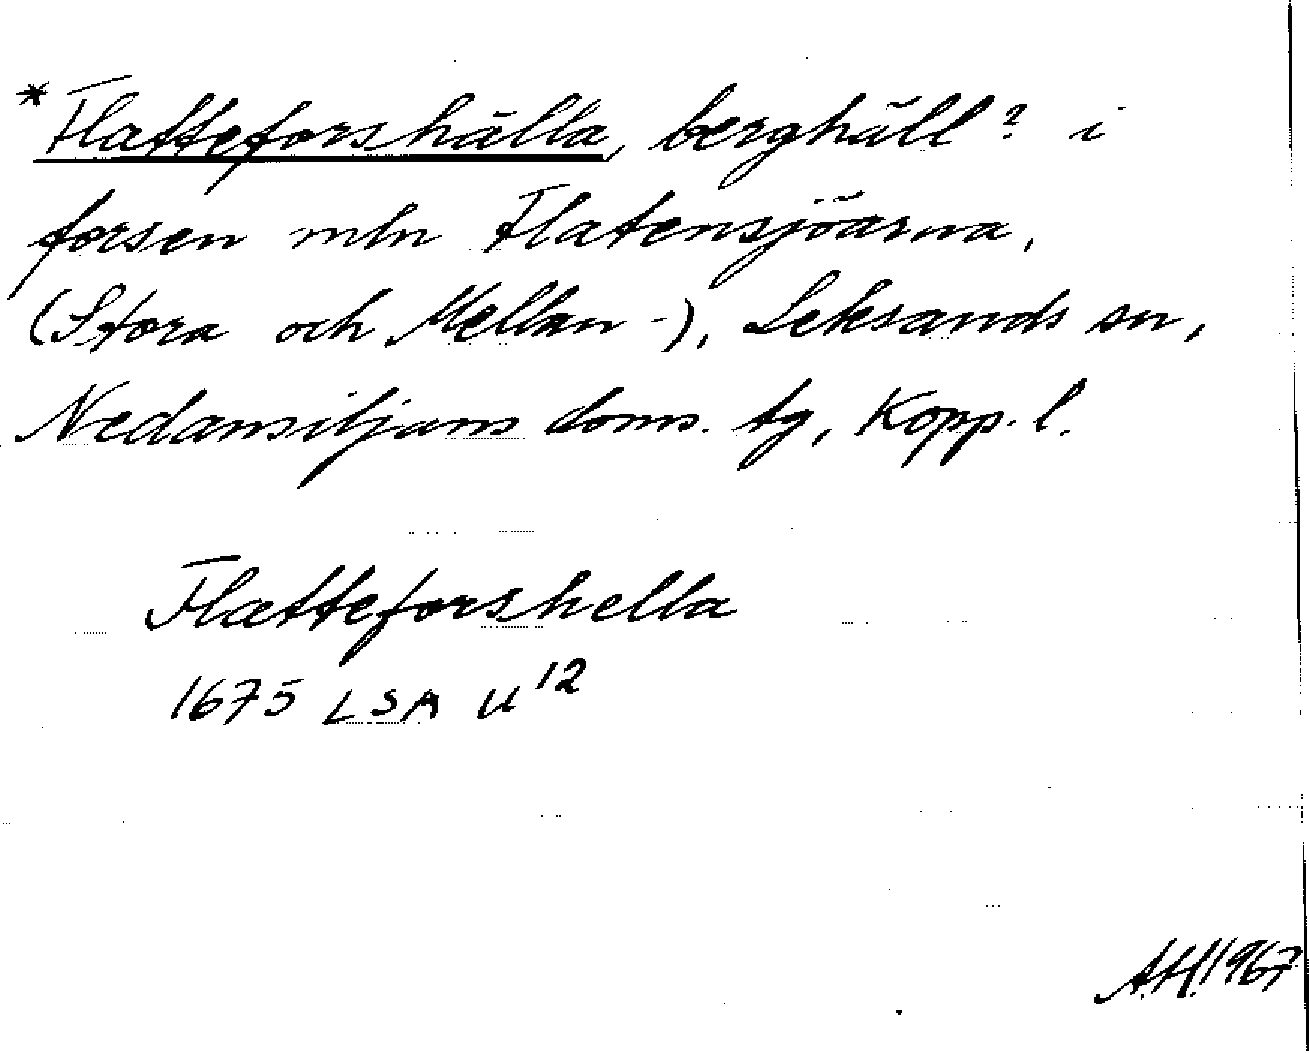 *Flatteforshälla, berghäll? i
forsen mln Flatensjöarna,
(Stora och Mellan-), Leksands sn,
Nedansiljans doms. tg, Kopp. l.
Flatteforshella
1675 LSA U12
A.H. 1967